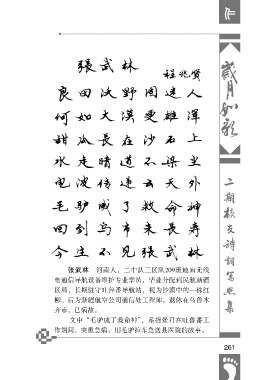 张武林
程兆贤
良田沃野固迷人
何如大漠更雄浑
甜瓜长在沙石上
水走暗道不染尘
电波传递云天外
毛驴成了救命神
回到乌市末长寿
今生不见张武林
张武林 河南人，二中队三区队209班地面无线
电通信导航设备维护专业学员，毕业分配到民航新疆
区局，长期驻守吐鲁番导航站，视为沙漠中的一株红
柳。后为新疆航空公司通信处工程师。退休在乌鲁木
齐市。已病故。
文中“毛驴成了救命神”，系指张君在吐鲁番工
作期间，突患急病，用毛驴拉车急送县医院的故事。
岁月如歌
二期校友诗词写照集
261